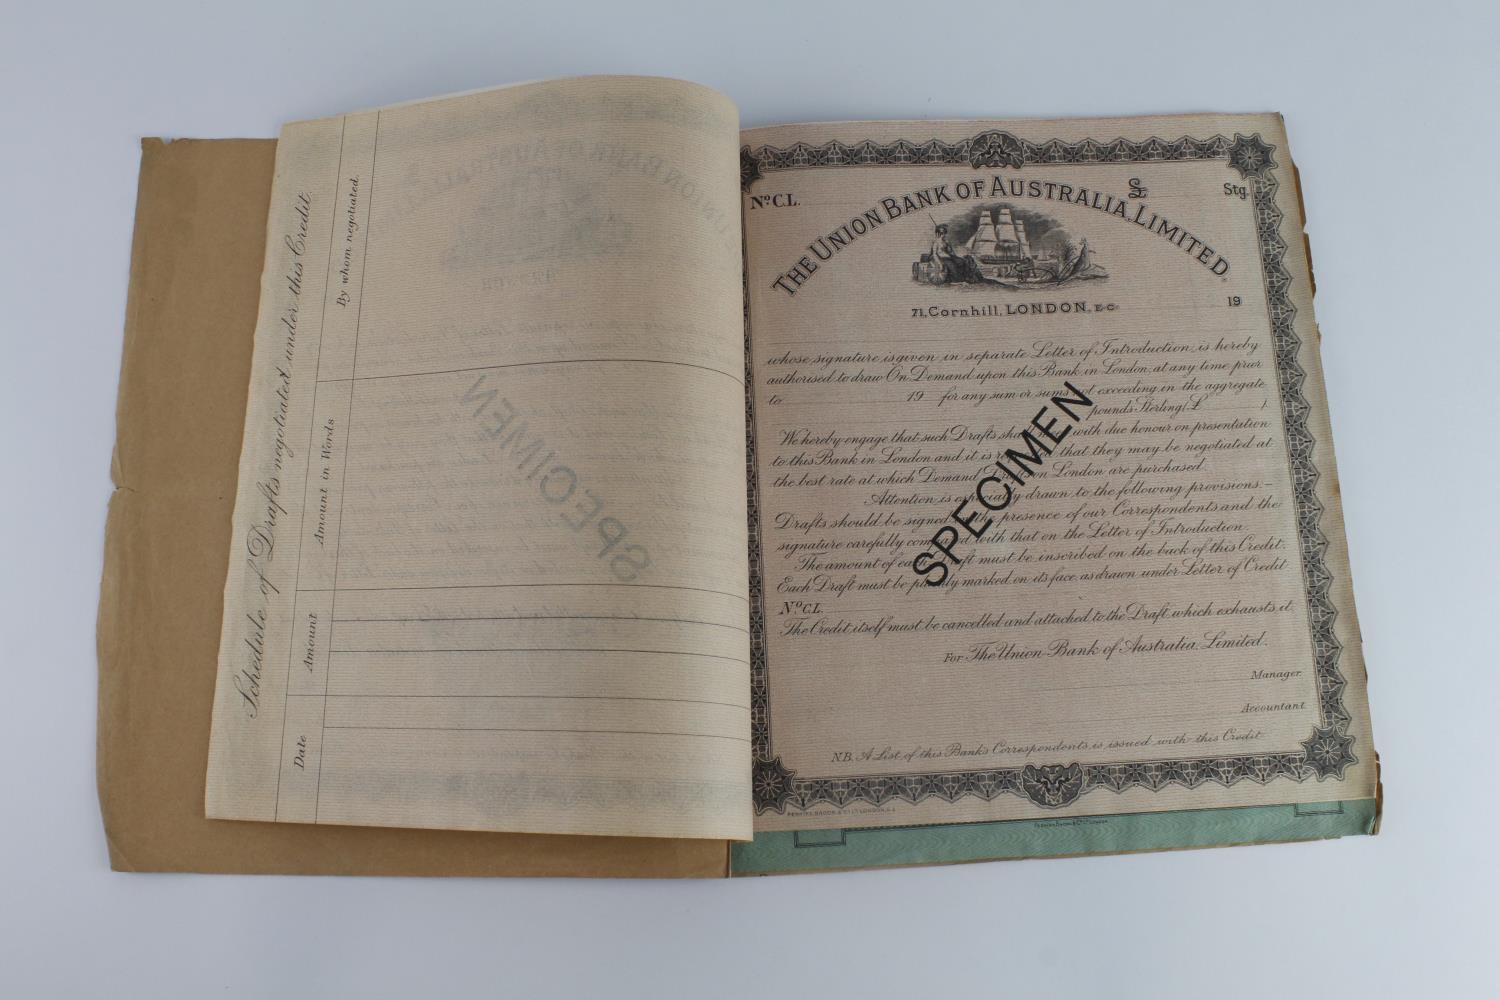 Schedule of Drafts negotiated under this Credit.
Date
Amount
Amount in Words
By whom negotiated.
SPECIMEN
No C.L.
£
Stg.
THE UNION BANK OF AUSTRALIA, LIMITED,
71, Cornhill, LONDON, E.C.
19
whose signature is given in separate Letter of Introduction, is hereby
authorised to draw On Demand upon this Bank in London, at any time prior
to 19 for any sum or sums not exceeding in the aggregate
pounds Sterling (£ ).
We hereby engage that such Drafts shall meet with due honour on presentation
to this Bank in London and it is requested that they may be negotiated at
the best rate at which Demand Drafts on London are purchased.
Attention is especially drawn to the following provisions:—
Drafts should be signed in the presence of our Correspondents and the
signature carefully compared with that on the Letter of Introduction.
The amount of each Draft must be inscribed on the back of this Credit.
Each Draft must be plainly marked on its face as drawn under Letter of Credit
No C.L.
The Credit itself must be cancelled and attached to the Draft which exhausts it.
For The Union Bank of Australia, Limited.
Manager.
Accountant.
N.B. A List of this Bank's Correspondents is issued with this Credit
SPECIMEN
PERKINS, BACON & CO LTD LONDON, E.C.